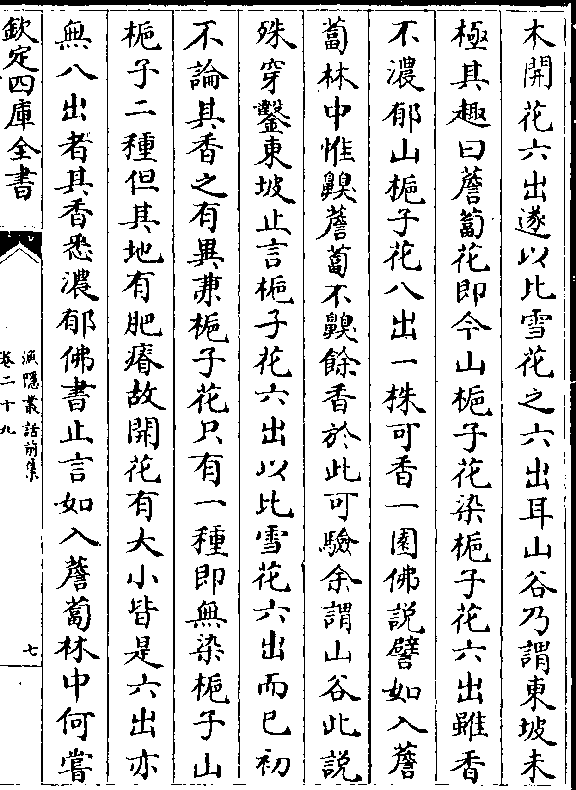 木開花六出遂以比雪花之六出耳山谷乃謂東坡未
極其趣曰薝蔔花即今山梔子花染梔子花六出雖香
不濃郁山梔子花八出一株可香一園佛說譬如入薝
蔔林中惟齅薝蔔不齅餘香於此可驗余謂山谷此說
殊穿鑿東坡止言梔子花六出以比雪花六出而已初
不論其香之有異兼梔子花只有一種即無染梔子山
梔子二種但其地有肥瘠故開花有大小皆是六出亦
無八出者其香悉濃郁佛書止言如入薝蔔林中何嘗
欽定四庫全書
漁隱叢話前集
卷二十九
七